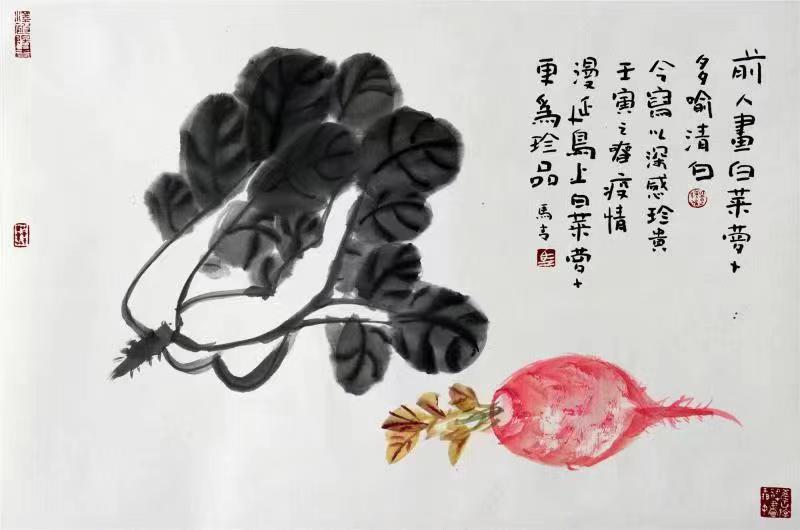 前人畫白菜萝卜
多喻清白
今寫以深感珍貴
壬寅之春疫情
漫延島上白菜萝卜
更為珍品 馬